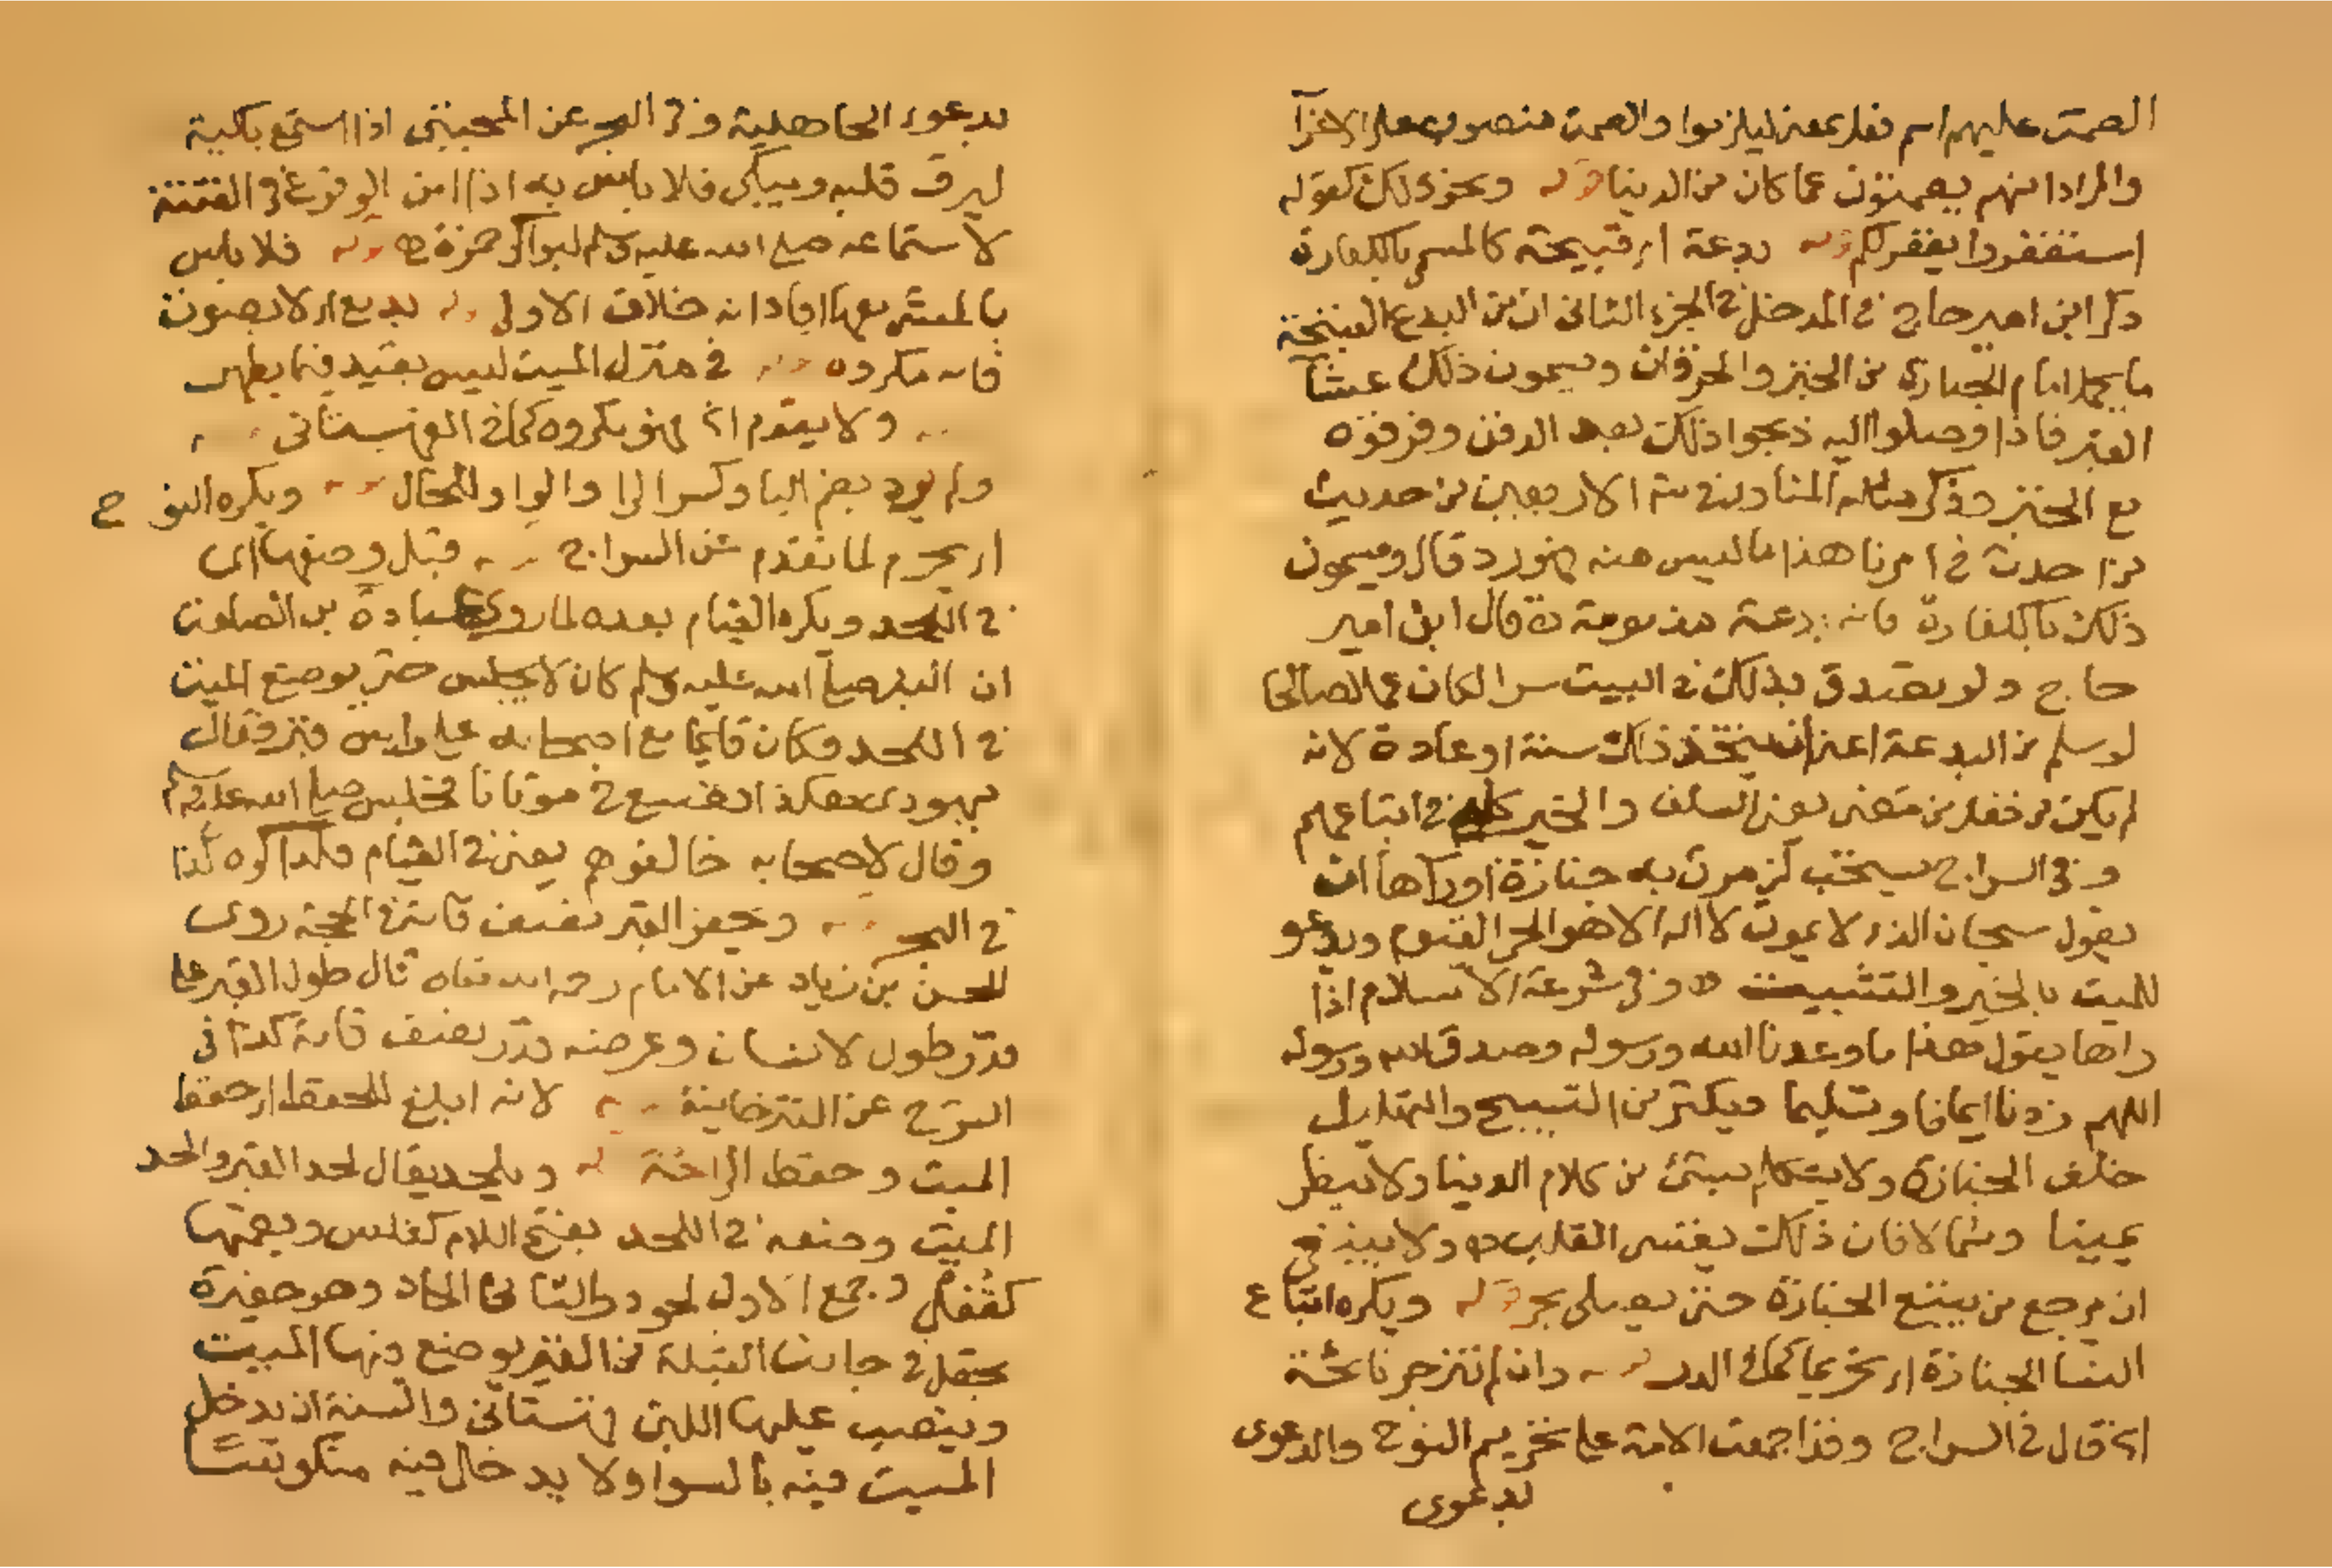 الصمت عليهم اسم فعل بمعنى ليلزموا والصمت منصوب على الاغرآ
والمراد انهم يصمتون عما كان من الدنيا قوله ونحو ذلك كقوله
استغفروا يغفر لكم قوله بدعة اى قبيحة كالمسمى بالكفارة
ذكر ابن امير حاج فى المدخل فى الجزء الثانى ان من البدع القبيحة
ما يحمل امام الجنازة من الخبز والخرفان ويسمون ذلك عشآ
القبر فاذا وصلوا اليه ذبحوا ذلك بعد الدفن وفرقوه
مع الخبز وذكر مثله المناوى فى الاربعين من حديث
من احدث فى امرنا هذا ما ليس منه فهو رد قال ويسمون
ذلك بالكفارة فانه بدعة مذمومة قال ابن امير
حاج ولو تصدق بذلك فى البيت سرا لكان عملا صالحا
لو سلم من البدعة اعنى ان يتخذ ذلك سنة او عادة لانه
لم يكن من فعل من مضى يعنى السلف والخير كله فى اتباعهم
وفى السراج يستحب لمن مرت به جنازة او رآها ان
يقول سبحان الذى لا يموت لا اله الا هو الحى القيوم ويدعو
للميت بالخير والتثبيت وفى شرعة الاسلام اذا
راها يقول هذا ما وعدنا الله ورسوله وصدق الله ورسوله
اللهم زدنا ايمانا وتسليما ويكثر من التسبيح والتهليل
خلف الجنازة ولا يتكلم بشئ من كلام الدنيا ولا ينظر
يمينا وشمالا فان ذلك يقسى القلب ولا ينبغى
ان يرجع من يتبع الجنازة حتى يصلى بحر قوله ويكره اتباع
النسا الجنازة اى تحريما كما فى الدر قوله وان لم تنزجر نائحة
اى قال فى السراج وقد اجمعت الامة على تحريم النوح والدعوى
بدعوى
بدعوى الجاهلية وفى البحر عن المجتبى اذا استمع باكية
ليرق قلبه ويبكى فلا باس به اذا امن الوقوع فى الفتنة
لاستماعه صلى الله عليه وسلم لبواكى حمزة قوله فلا باس
بالمشى معها افاد انه خلاف الاولى قوله برفع الاصوت
فانه مكروه قوله فى منزل الميت ليس بقيد فيما يظهر
ولا يتقدم اى فهو مكروه كما فى القهستانى
ولم يرد بضم اليا وكسر الرا والواو للحال قوله ويكره النوح
اى يحرم لما تقدم عن السراج قوله قبل وضعها اى
فى اللحد ويكره القيام بعده لما روى عبادة بن الصامت
ان النبى صلى الله عليه وسلم كان لا يجلس حتى يوضع الميت
فى اللحد فكان قايما مع اصحابه على راس قبر فقال
يهودى هكذا نصنع فى موتانا فجلس صلى الله عليه وسلم
وقال لاصحابه خالفوهم يعنى فى القيام فلذا كره كذا
فى البحر قوله وحفر القبر نصف قامة فى الحجة روى
الحسن بن زياد عن الامام رحمه الله تعالى قال طول القبر على
قدر طول الانسان وعرضه قدر نصف قامة كذا فى
الشرح عن التترخانية قوله لانه ابلغ للحفظ اى حفظ
الميت وحفظ الرائحة قوله ويلحد يقال لحد القبر والحد
الميت وضعه فى اللحد بفتح اللام كفلس وبضمها
كقفل وجمع الاول لحود والثانى الحاد وهو حفيرة
تجعل فى جانب القبلة من القبر يوضع فيها الميت
وينصب عليها اللبن قهستانى والسنة ان يدخل
الميت فيه بالسوا ولا يدخال فيه منكوسًا